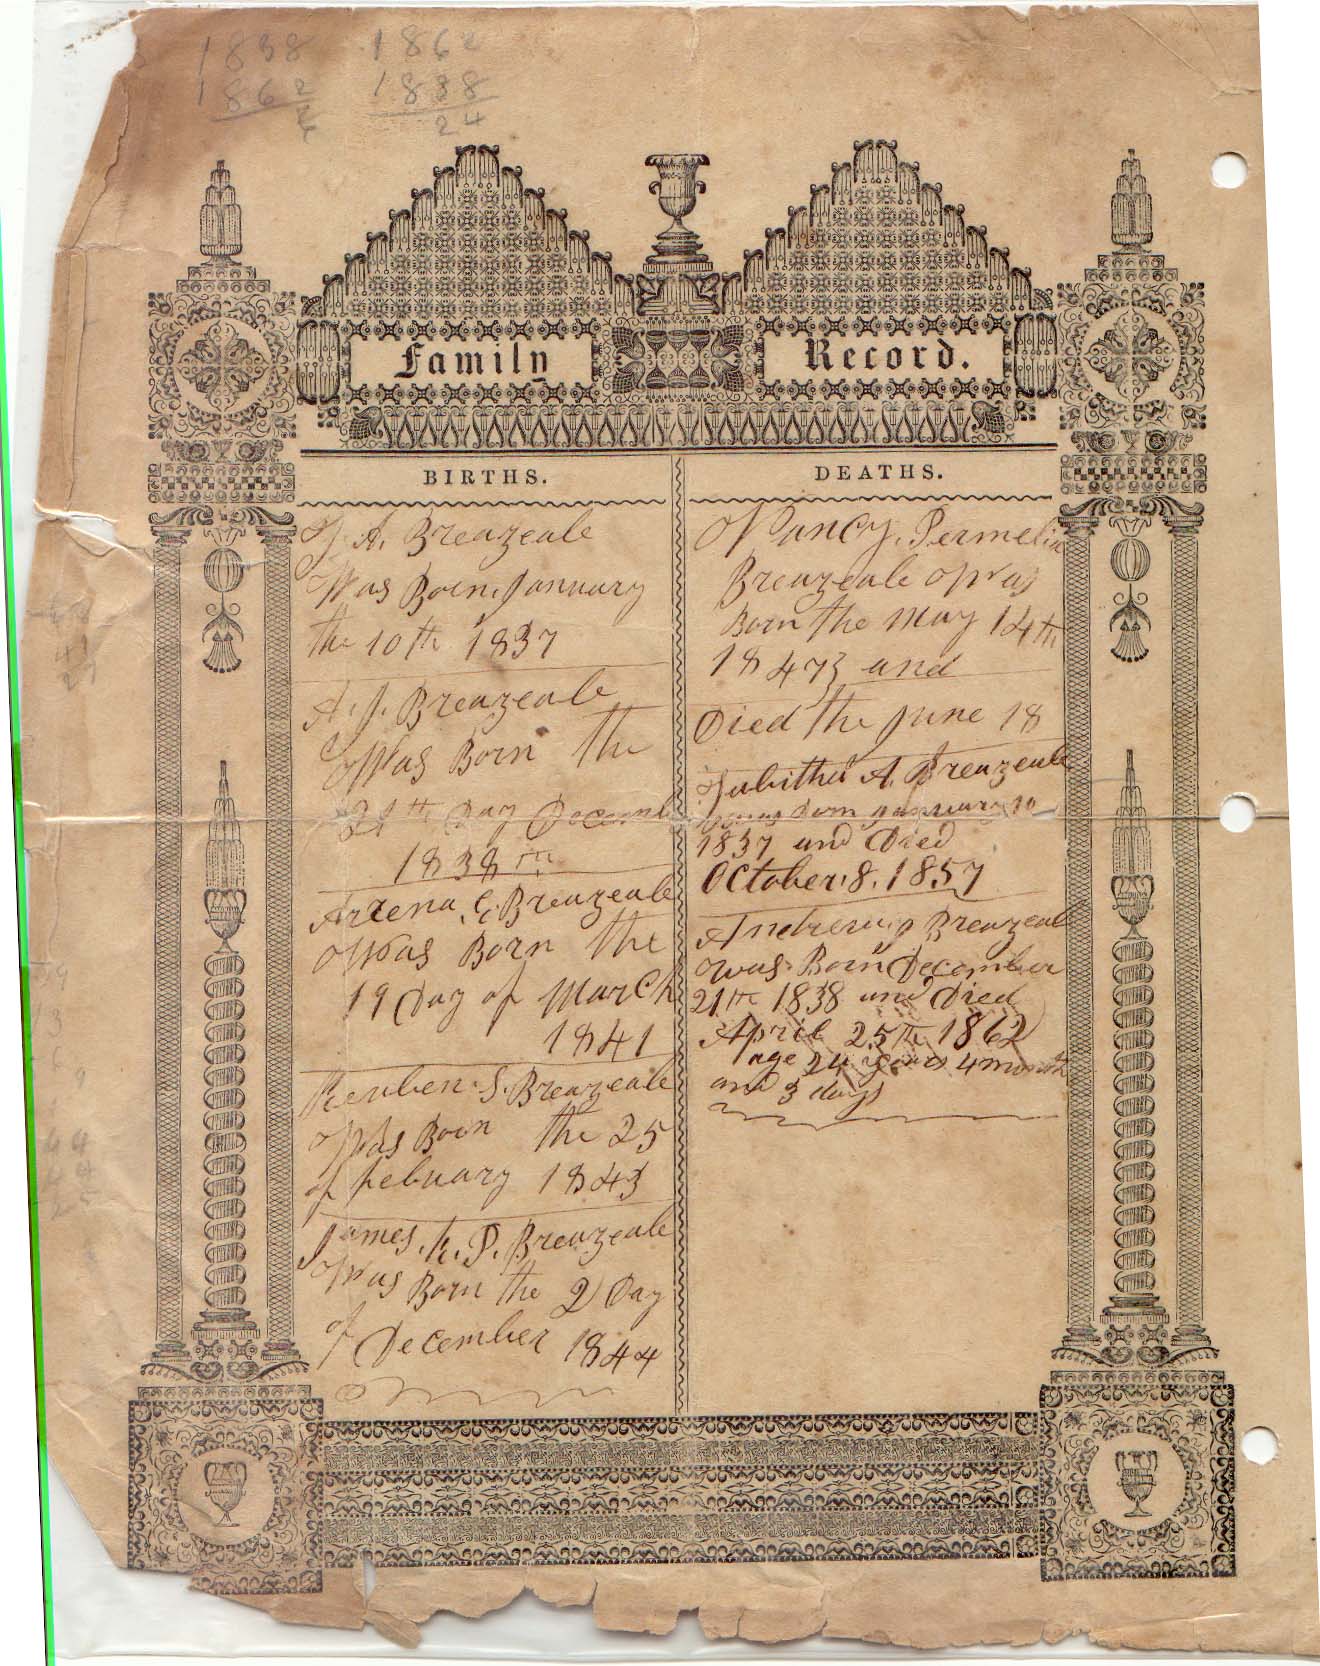 1838 1862
1862 1838
24
Family Record.
BIRTHS.
T. A. Breazeale
Was Born January
the 10th 1837
A. J. Breazeale
Was Born the
21th Day Decemb
1838th
Arrena. C. Breazeale
Was Born the
19 Day of March
1841
Reuben. S. Breazeale
Was Born the 25
of febuary 1843
James. K. P. Breazeale
Was Born the 2 Day
of December 1844
DEATHS.
Nancy. Permelia
Breazeale Was
Born the May 14th
and
Died the June 18
Tabitha A. Breazeale
was born January 10
1837 and Died
October. 8. 1857
Andrew J Breazeale
was Born December
21th 1838 and Died
April 25th 1862
age 24 years 4 month
and 3 days